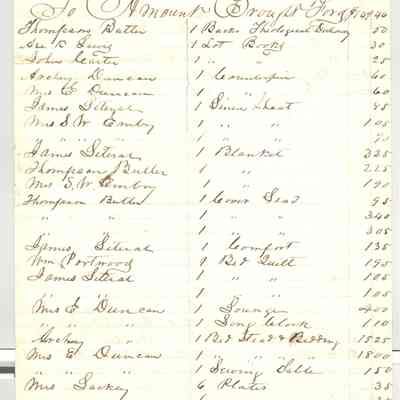 To Amount Brought Ford
Thompson Butler 1 Backs Theological 50
1 Lot Books 30
John Carter 1 " " 25
Archey Duncan 1 Counterpin 60
Mrs E Duncan 1 " 60
James Literal 1 Linen Sheet 45
Mrs S. W. Embry 1 " " 105
" " " " 1 " " 70
James Literal 1 Blanket 325
Thompson Butler 1 " 225
Mrs S. W. Embry 1 " 190
Thompson Butler 1 Cover Lead 95
" " 1 " " 340
" " 1 " " 305
James, Literal 1 Comfort 135
Wm Portwood 1 Bed Quilt 195
James Literal 1 " " 105
" " 1 " " 105
Mrs E Duncan 1 Lounge 400
" " " 1 Song Clock 110
Archey " 1 Bed Stead & Bedding 1525
Mrs E Duncan 1 " " " " 1800
" " " 1 Sewing Table 150
Mrs Lackey 6 Plates 35